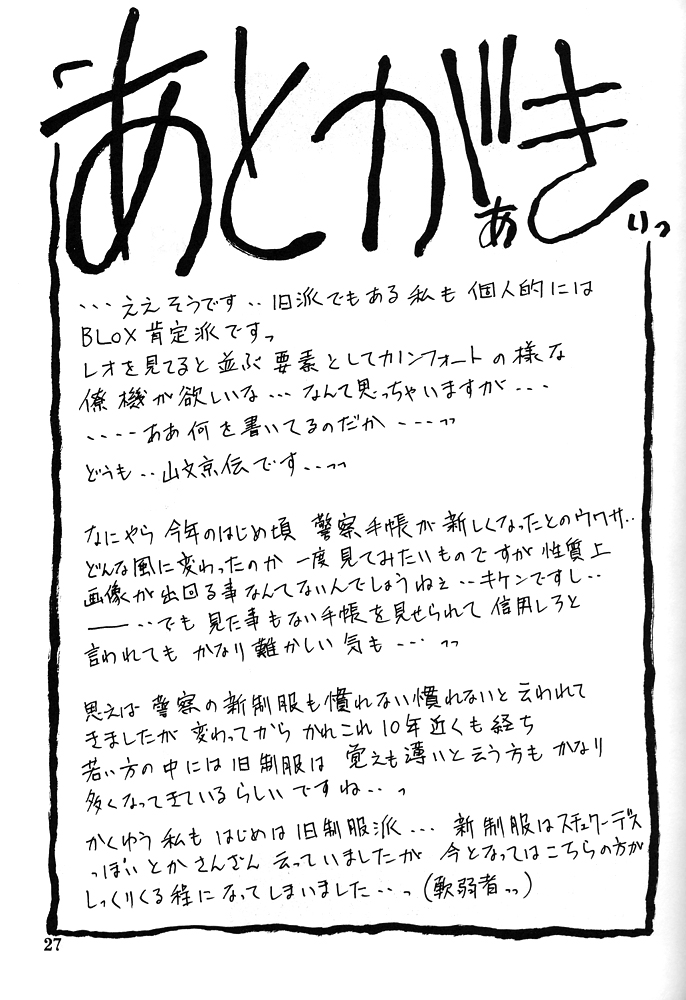 あとがきぃっ
‥‥ええそうです‥旧派でもある私も 個人的には
BLOX肯定派ですっ
レオを見てると並ぶ要素としてカノンフォートの様な
僚機が欲しいな‥‥なんて思っちゃいますが‥‥
‥‥‥ああ何を書いてるのだか‥‥っっ
どうも‥山文京伝です‥‥っっ
なにやら今年のはじめ頃 警察手帳が新しくなったとのウワサ‥
どんな風に変わったのか 一度見てみたいものですが性質上
画像が出回る事なんてないんでしょうねぇ‥キケンですし‥
――‥でも 見た事もない手帳を見せられて 信用しろと
言われても かなり難かしい気も‥‥っっ
思えば 警察の新制服も慣れない慣れないと云われて
きましたが 変わってから かれこれ10年近くも経ち
若い方の中には旧制服は 覚えも薄いと云う方も かなり
多くなってきているらしいですね‥っ
かくゆう私も はじめは旧制服派‥‥ 新制服はスチュワーデス
っぽいとかさんざん云っていましたが 今となってはこちらの方が
しっくりくる程になってしまいました‥‥っ(軟弱者っっ)
27